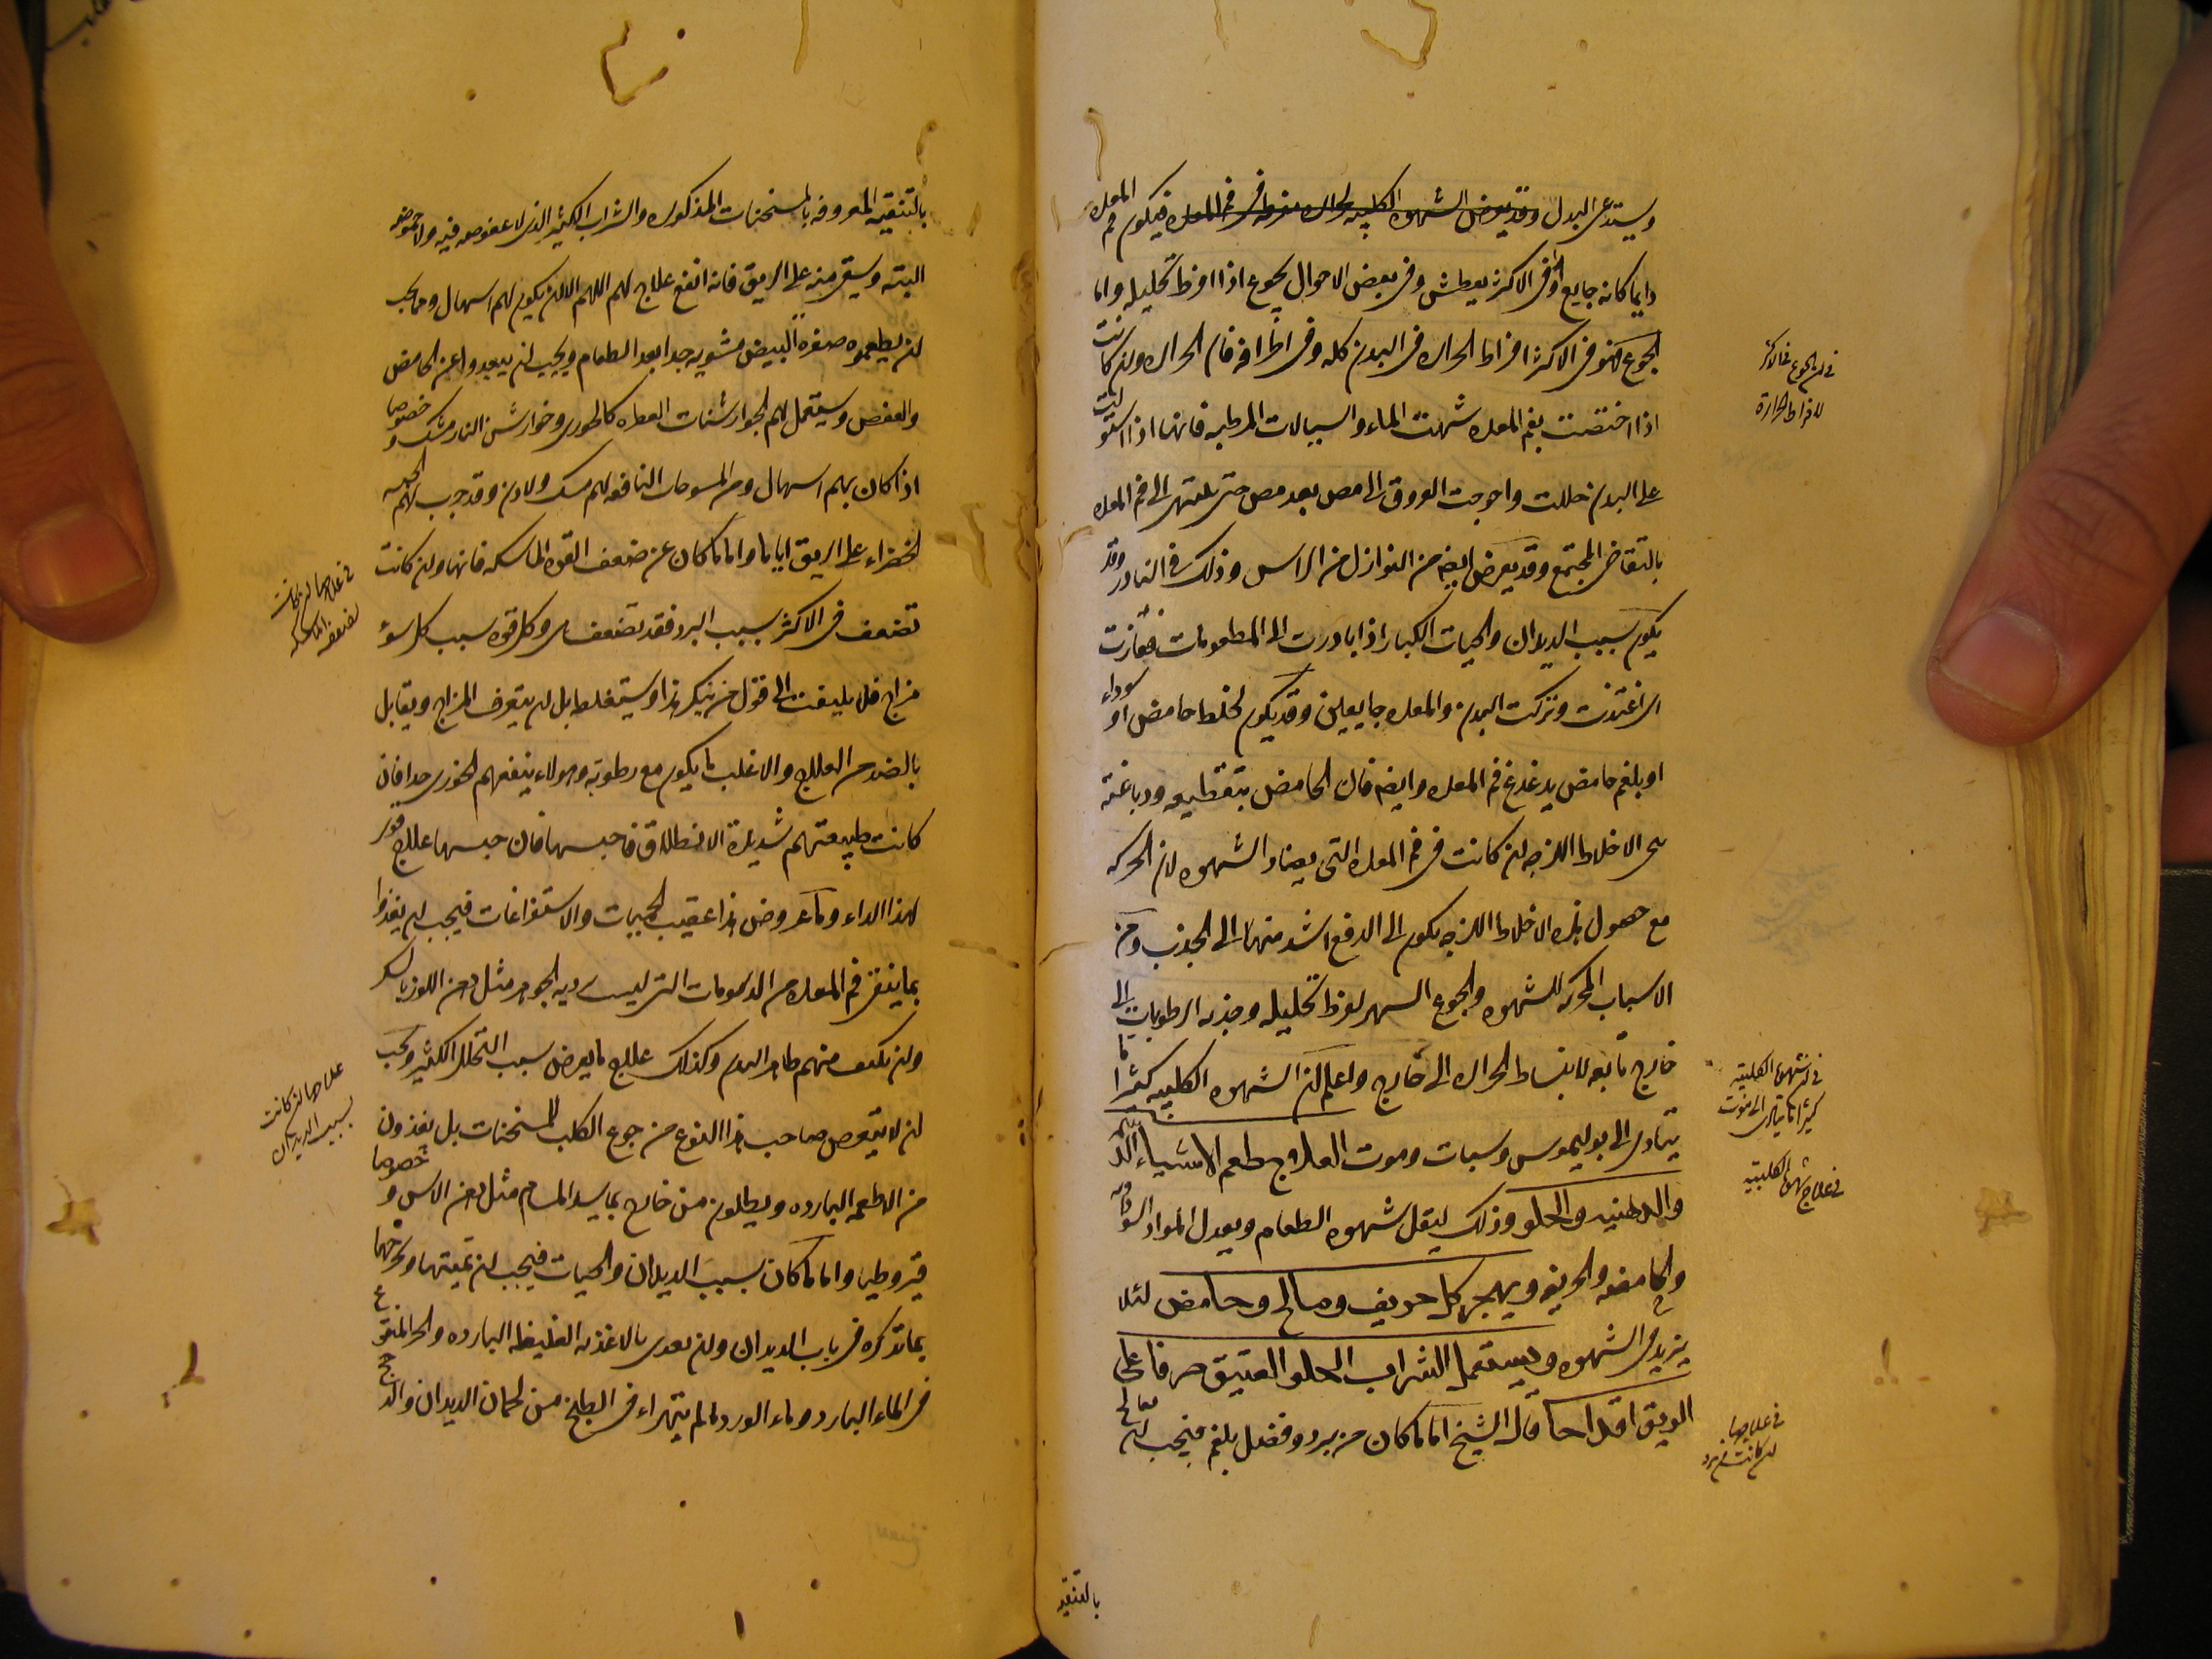 ويستدعى البدل وقد يعرض الشهوه الكلبيه لحراره مفرطه فى فم المعده فيكون فم المعده
دايما كانه جايع وفى الاكثر يعطش وفى بعض الاحوال يجوع اذا افرط تحليله واما
الجوع فهو فى الاكثر افراط الحراره فى البدن كله وفى اطرافه فان الحراره وان كانت
اذا اختصت بفم المعده شهت الماء والسيالات المرطبه فانها اذا استولت
على البدن حللت واحوجت العروق الى مص بعد مص حتى ينتهى الى فم المعده
بالتقاضى المجتمع وقد يعرض ايضا من النوازل من الراس وذلك فى النادر وقد
يكون بسبب الديدان والحيات الكبار اذا بادرت الى المطعومات ففازت
اى اغتذت وتركت البدن والمعده جايعين وقد يكون لخلط حامض او سوداء
او بلغم حامض يدغدغ فم المعده وايضا فان الحامض بتقطيعه ودباغته
الاخلاط اللزجه ان كانت فى فم المعده التى يضاد الشهوه لان الحركه
مع حصول هذه الاخلاط اللزجه يكون الى الدفع اشد منها الى الجذب ومن
الاسباب المحركه للشهوه والجوع السهر لفرط تحليله وجذبه الرطوبات الى
خارج تابعه لانبساط الحراره الى خارج واعلم ان الشهوه الكلبيه كثيرا ما
يتادى الى بوليموس وسبات وموت العلاج طعم الاشياء الدسمه
والدهنيه والحلو وذلك ليقل شهوه الطعام ويعدل المواد السوداويه
والحامضه والحريفه ويهجر كل حريف ومالح وحامض لئلا
يزيد فى الشهوه ويستعمل الشراب الحلو العتيق صرفا على
الريق اقداحا قال الشيخ اما ما كان من برد وفضل بلغم فيجب ان يعالج
فى ان الجوع فى الاكثر
لافراط الحرارة
فى ان شهوة الكلبيه
كثيرا ما يتادى الى موت
فى علاج شهوة الكلبيه
فى علاجها
ان كانت من برد
بالتنقيه
بالتنقيه المعروفه بالمسخنات المذكوره والشراب الكثير الذى لا عفوصه فيه ولا حموضه
البته ويسقى منه على الريق فانه انفع علاج لهم اللهم الا ان يكون لهم اسهال ومما يجب
ان يطعموه صفره البيض مشويه جدا بعد الطعام ويجب ان يبعدوا عن الحامض
والعفص ويستعمل لهم الجوارشنات العطره كالجوزى وجوارشن النارمشك وخصوصا
اذا كان بهم اسهال ومن المسوحات النافعه لهم مسك ولادن وقد جرب لهم الحبه
الخضراء على الريق اياما واما ما كان عن ضعف القوه الماسكه فانها وان كانت
تضعف فى الاكثر بسبب البرد فقد تضعف هى وكل قوه بسبب كل سوء
مزاج فلا يلتفت الى قول من ينكر هذا ويستغلط بل ان يتعرف المزاج ويقابل
بالضد من العلاج والاغلب ما يكون مع رطوبه وهولاء ينفعهم الخوزى جدا فان
كانت طبيعتهم شديدة الانطلاق فاحبسها فان حبسها علاج قوى
لهذا الداء وما عروض هذا عقيب الحميات والاستفراغات فيجب ان يغذوا
بما ينقى فم المعده من الدسومات التى ليست رديه الجوهر مثل دهن اللوز بالسكر
وان يكثف منهم ظاهر البدن وكذلك علاج ما يعرض بسبب التحلل الكثير ويجب
ان لا يتعرض صاحب هذا النوع من جوع الكلب للمسخنات بل يغذون
من الاطعمه البارده ويطلون من خارج بما يسد المسام مثل دهن الاس وخصوصا
قيروطيا واما ما كان بسبب الديدان والحيات فيجب ان تميتها وتخرجها
بما نذكره فى باب الديدان وان يغذى بالاغذيه الغليظه البارده والخبز المنقوع
فى الماء البارد وماء الورد ما لم يتهراء فى الطبخ من لحمان الديدان والدجاج
فى علاجها ان كانت
لضعف الماسكه
علاجها ان كانت
بسبب الديدان